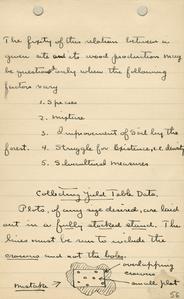 The fixity of this relation between a
given site and its wood production may
be questioned only when the following
factors vary
1. Species
2. Mixture
3. Improvement of Soil by the
forest. 4. Struggle for Existence, i.e. density
5. Silvicultural measures
Collecting Yield Table Data.
Plots, of any age desired, are laid
out in a fully stocked stand. The
lines must be run to include the
crowns and not the boles.
overlapping
crowns
Mistake small plot
56